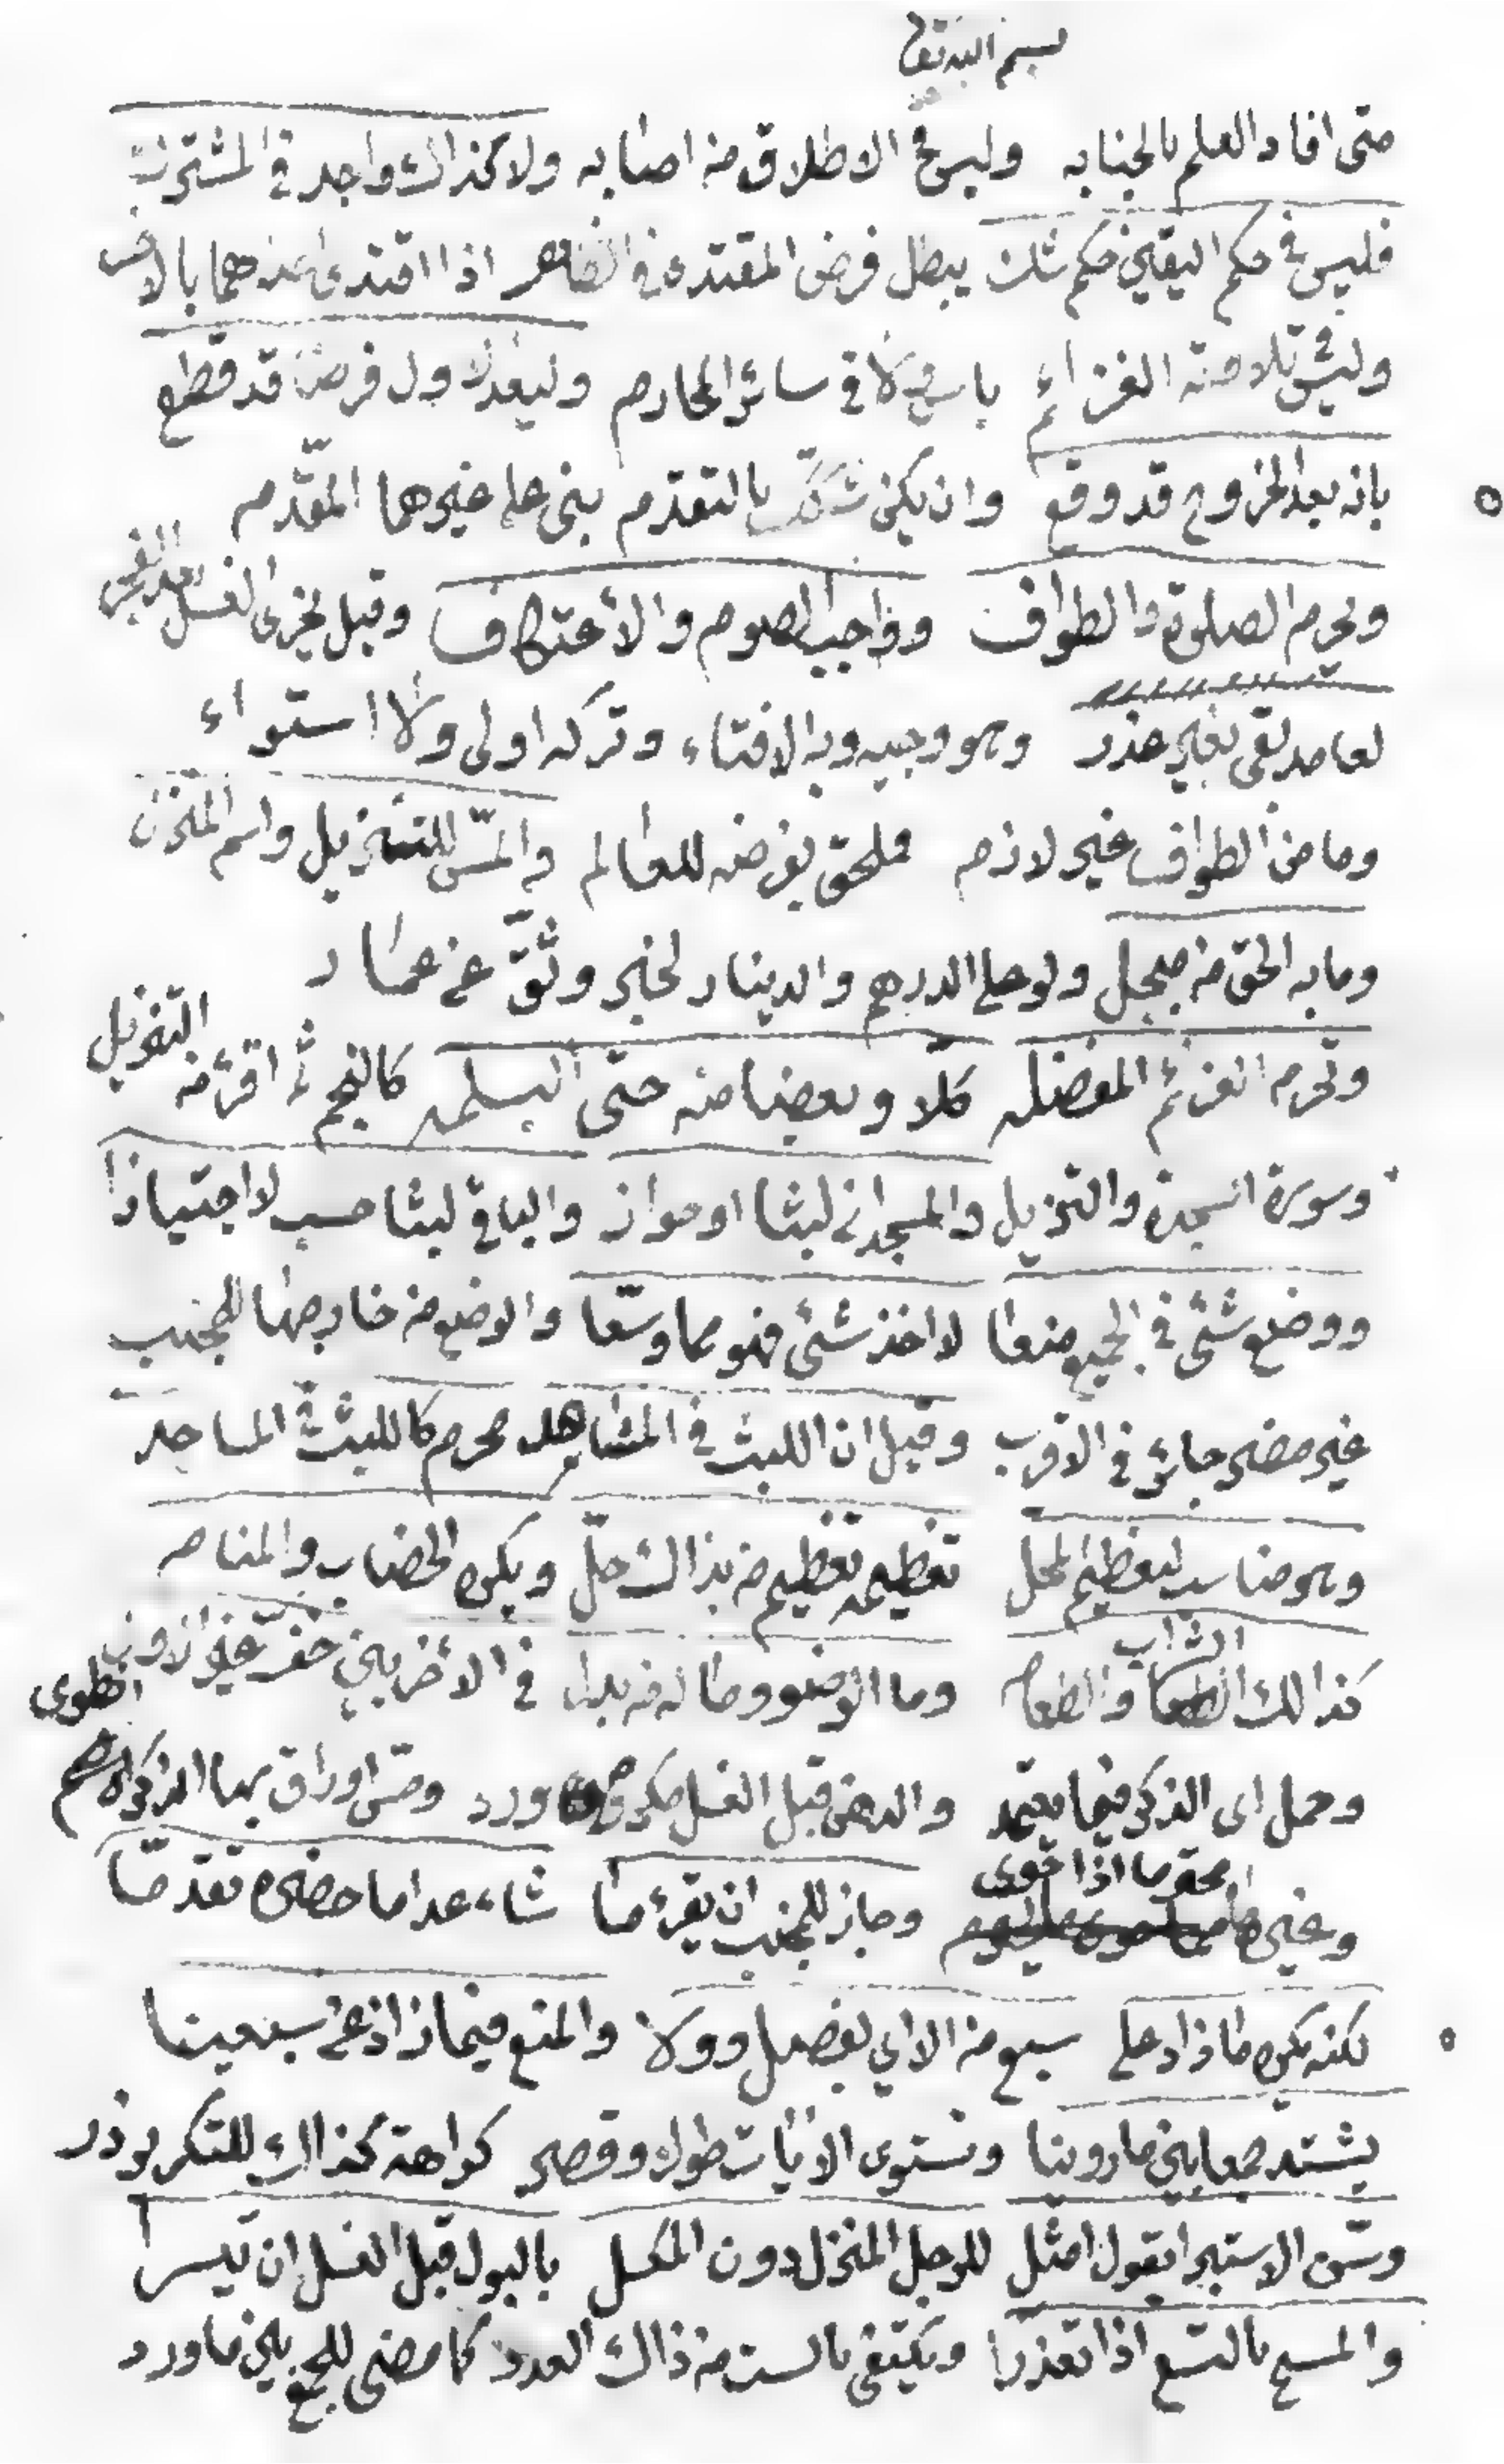 بسم الله تعالى
متى افاد العلم بالجنابه وليس في الاطلاق من اصابه ولا كذاك واجد في المشترك
فليس في حكم اليقين حكم شك يبطل فرض المقتدى في الظاهر اذا اقتدى احدهما بالاخر
وليس تلاوته العزائم باس كلا في سائر المحارم وليعد الاول فرضا قد قطع
بانه بعد الخروج قد وقع وان يكن شك بالتقدم بنى على غيرها المقدم
ويحرم الصلوة والطواف وواجب الصوم والاعتكاف وقيل يجزى الغسل بعد الفجر
لعامد بقى بغير عذر وهو وجيه وبه الافتاء وتركه اولى ولا استواء
وما من الطواف غير لازم فملحق بفرضه للعالم والمسّ للتنزيل واسم المنزل
وما به الحق من مبجل ولو على الدرهم والدينار لخبر وثّق عن عمار
وتحرم العزائم المفضله كلّا وبعضا منه حتى البسمله كالنجم ثم اقرء من التنزيل
وسورة السجدة والتنزيل والمسجدان لبثا او جواز والباقي لبثا حسب لا اجتيازا
ووضع شئى في الجميع منعا لا اخذ شئى فهو مما وسّعا والوضع من خارجها للجنب
غير مضر جائز في الاقرب وقيل ان اللبث في المشاهد محرم كاللبث في المساجد
وهو مناسب لتعظيم المحل تعظيمه تعظيم من بذاك حلّ ويكره الخضاب والمنام
كذالك الشراب والطعام وما الوضوء وماله من بدل في الاخريين
وحمل اى الذكر فيما يعتمد والدهن قبل الغسل مكروه ورد ومسّ اوراق بها الذكر
وغيرها وجاز للجنب ان يقرء ما شاء عدا ما حضره تقدما
لكنه يكره ما زاد على سبع من الاي بفصل وولا والمنع فيما زاد عن سبعينا
يشتد جمعا بين ما روينا وتستوى الايات طول وقصر كراهة كذاك للتكرير ذر
وسّن الاستبرا بقول امثل للرجل المنزل دون المكسل بالبول قبل الغسل ان تيسرا
والمسح بالتسع اذا تعذرا ويكتفى بالست من ذاك العدد كما مضى للجمع بين ما ورد